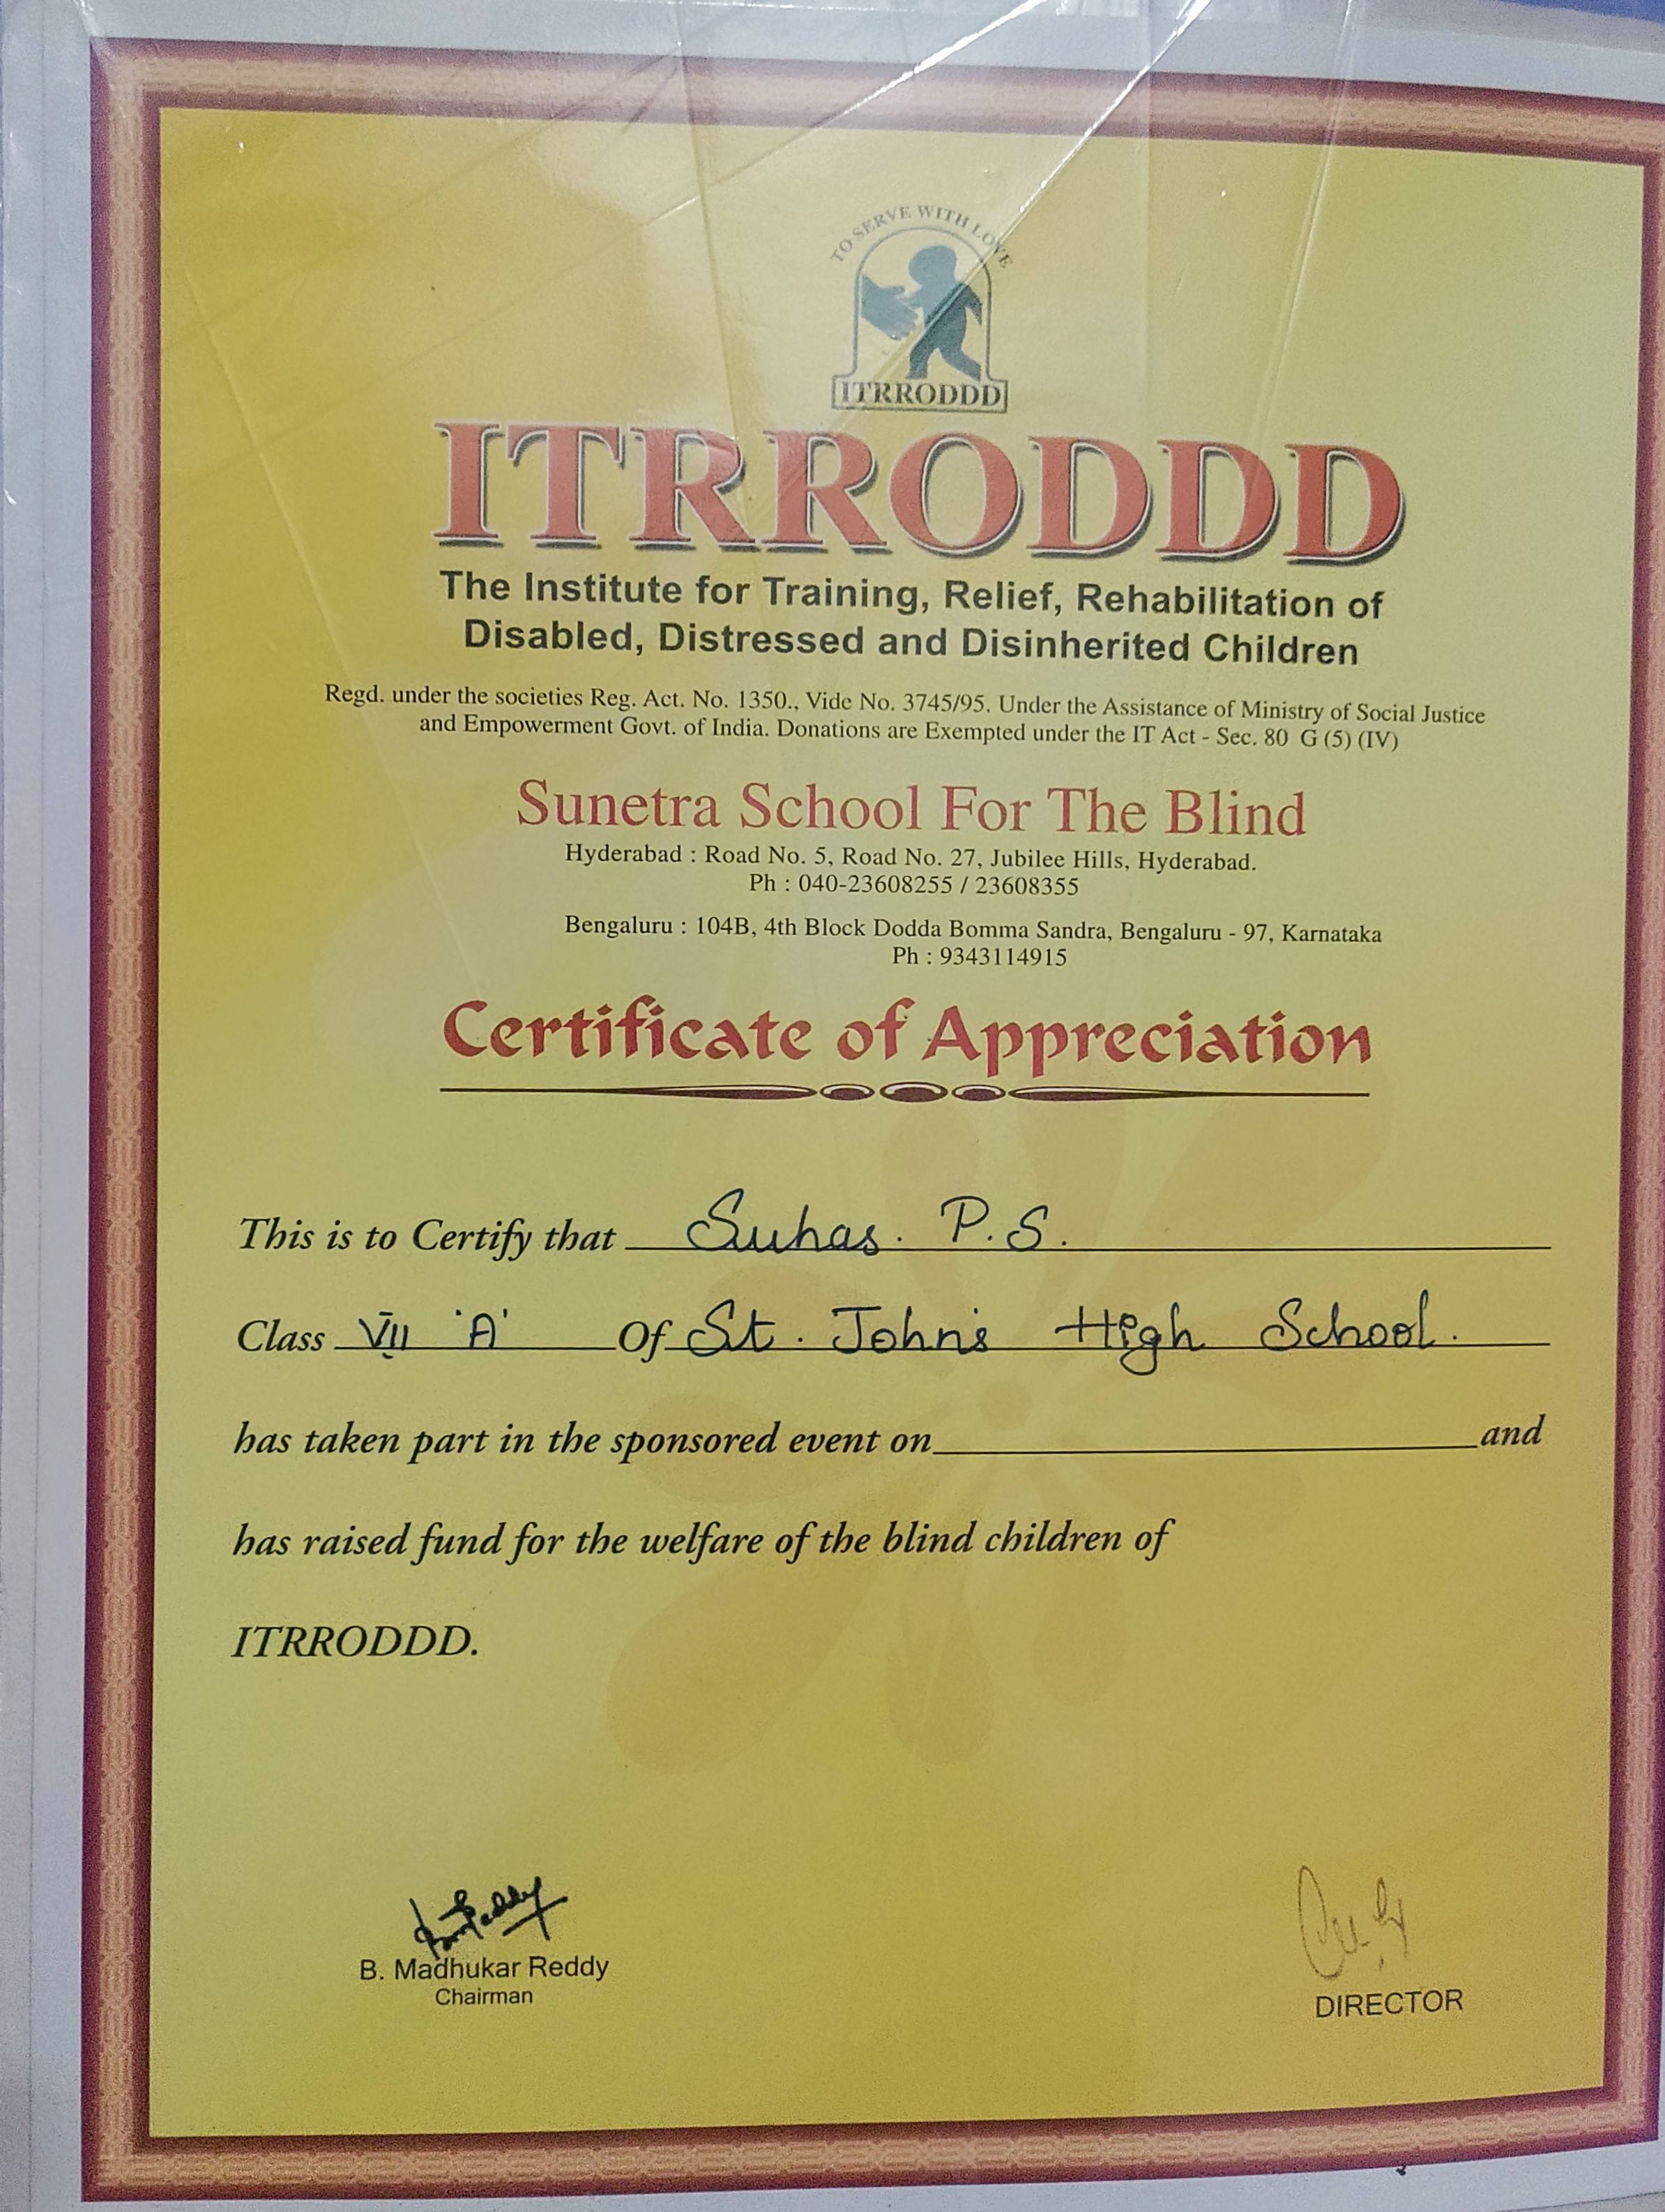 TO SERVE WITH LOVE
ITRRODDD
ITRRODDD
The Institute for Training, Relief, Rehabilitation of
Disabled, Distressed and Disinherited Children
Regd. under the societies Reg. Act. No. 1350., Vide No. 3745/95. Under the Assistance of Ministry of Social Justice
and Empowerment Govt. of India. Donations are Exempted under the IT Act - Sec. 80 G (5) (IV)
Sunetra School For The Blind
Hyderabad : Road No. 5, Road No. 27, Jubilee Hills, Hyderabad.
Ph : 040-23608255 / 23608355
Bengaluru : 104B, 4th Block Dodda Bomma Sandra, Bengaluru - 97, Karnataka
Ph : 9343114915
Certificate of Appreciation
This is to Certify that Suhas. P.S.
Class VII 'A' Of St. John's High School.
has taken part in the sponsored event on and
has raised fund for the welfare of the blind children of
ITRRODDD.
B. Madhukar Reddy
Chairman
DIRECTOR